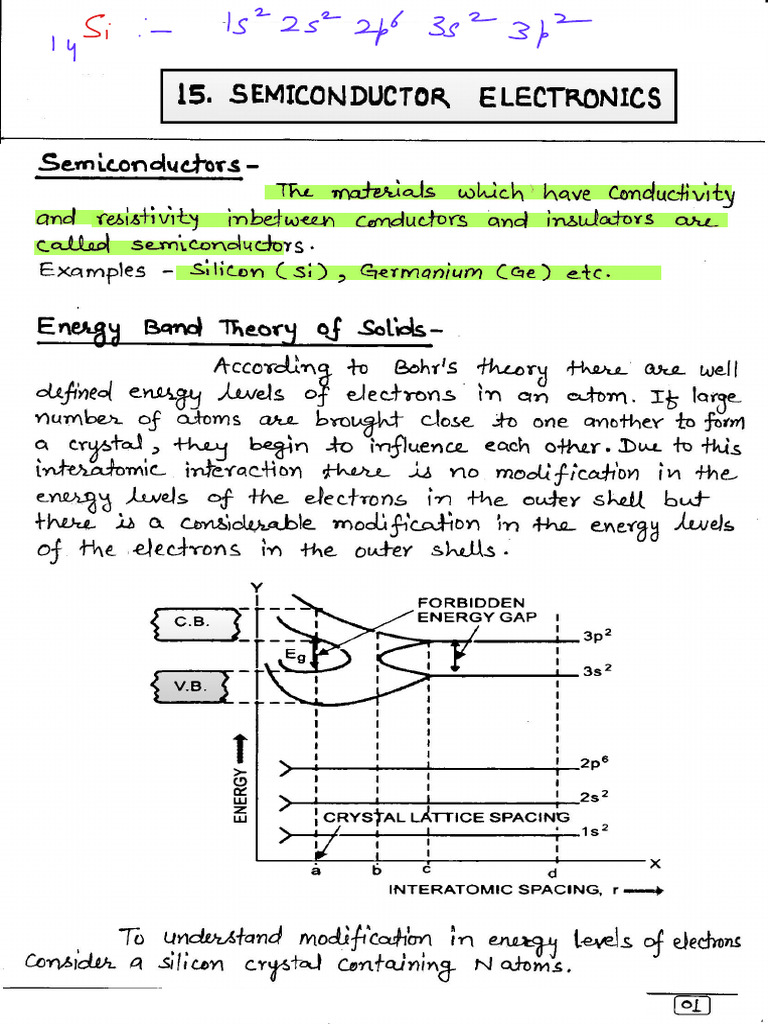 14Si :- 1s² 2s² 2p⁶ 3s² 3p²
15. SEMICONDUCTOR ELECTRONICS
Semiconductors-
The materials which have conductivity
and resistivity inbetween conductors and insulators are
called semiconductors.
Examples - Silicon (Si), Germanium (Ge) etc.
Energy Band Theory of Solids-
According to Bohr's theory there are well
defined energy levels of electrons in an atom. If large
number of atoms are brought close to one another to form
a crystal, they begin to influence each other. Due to this
interatomic interaction there is no modification in the
energy levels of the electrons in the outer shell but
there is a considerable modification in the energy levels
of the electrons in the outer shells.
Y
FORBIDDEN
ENERGY GAP
C.B.
3p²
Eg
3s²
V.B.
2p⁶
2s²
ENERGY
CRYSTAL LATTICE SPACING
1s²
X
a b c d
INTERATOMIC SPACING, r
To understand modification in energy levels of electrons
Consider a silicon crystal containing N atoms.
01